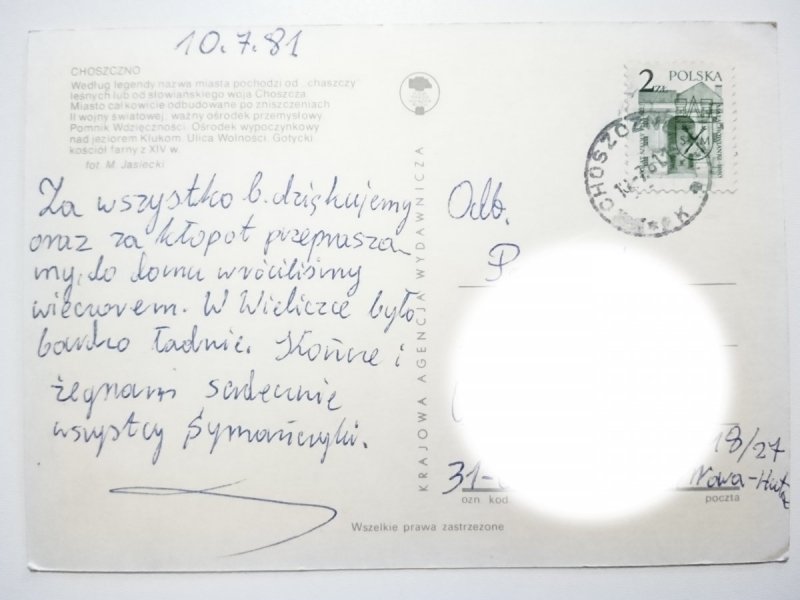 10.7.81
CHOSZCZNO
Według legendy nazwa miasta pochodzi od „chaszczy"
leśnych lub od słowiańskiego woja Choszcza.
Miasto całkowicie odbudowane po zniszczeniach
II wojny światowej, ważny ośrodek przemysłowy.
Pomnik Wdzięczności. Ośrodek wypoczynkowy
nad jeziorem Klukom. Ulica Wolności. Gotycki
kościół farny z XIV w.
fot. M. Jasiecki
Za wszystko b. dziękujemy
oraz za kłopot przeprasza-
my, do domu wróciliśmy
wieczorem. W Wieliczce było
bardzo ładnie. Kończę i
żegnam serdecznie
wszystcy Symańczyki.
KRAJOWA AGENCJA WYDAWNICZA
2 ZŁ POLSKA
CHOSZCZNO
Odb.
P
18/27
31-
Nowa-Huta
ozn. kod
poczta
Wszelkie prawa zastrzeżone